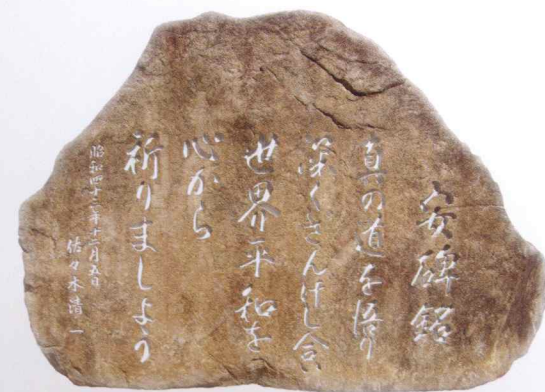 碑銘
真の道を悟り
深くさんげし合
世界平和を
心から
祈りましよう
昭和四十二年十二月五日
佐々木清一